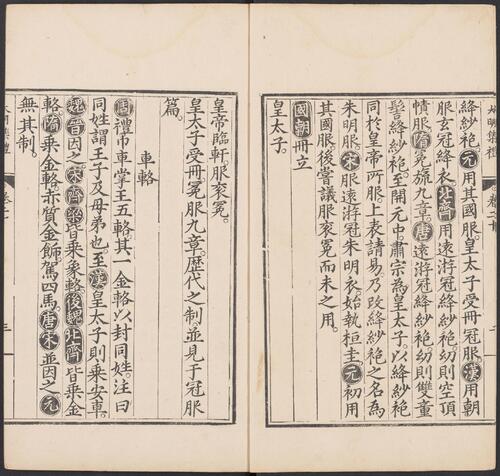 絳紗袍。元用其國服。皇太子受冊冕服漢用朝
服玄冠絳衣北齊用遠游冠絳紗袍幼則空頂
幘服隋冕旒九章。唐遠游冠絳紗袍幼則雙童
髻絳紗袍。至開元中肅宗為皇太子以絳紗袍
同於皇帝所服。上表請易乃改絳紗袍之名為
朱明服。宋服遠游冠朱明衣始執桓圭。元初用
其國服後嘗議服衮冕而未之用。
國朝冊立
皇太子。
皇帝臨軒服衮冕。
皇太子受冊冕服九章。歷代之制並見于冠服
篇。
車輅
周禮巾車掌王五輅其一金輅以封同姓。注曰
同姓謂王子及母弟也。至漢皇太子則乘安車。
魏晉因之宋齊梁皆乘象輅後魏北齊皆乘金
輅隋乘金輅赤質金飾駕四馬。唐宋並因之元
無其制。